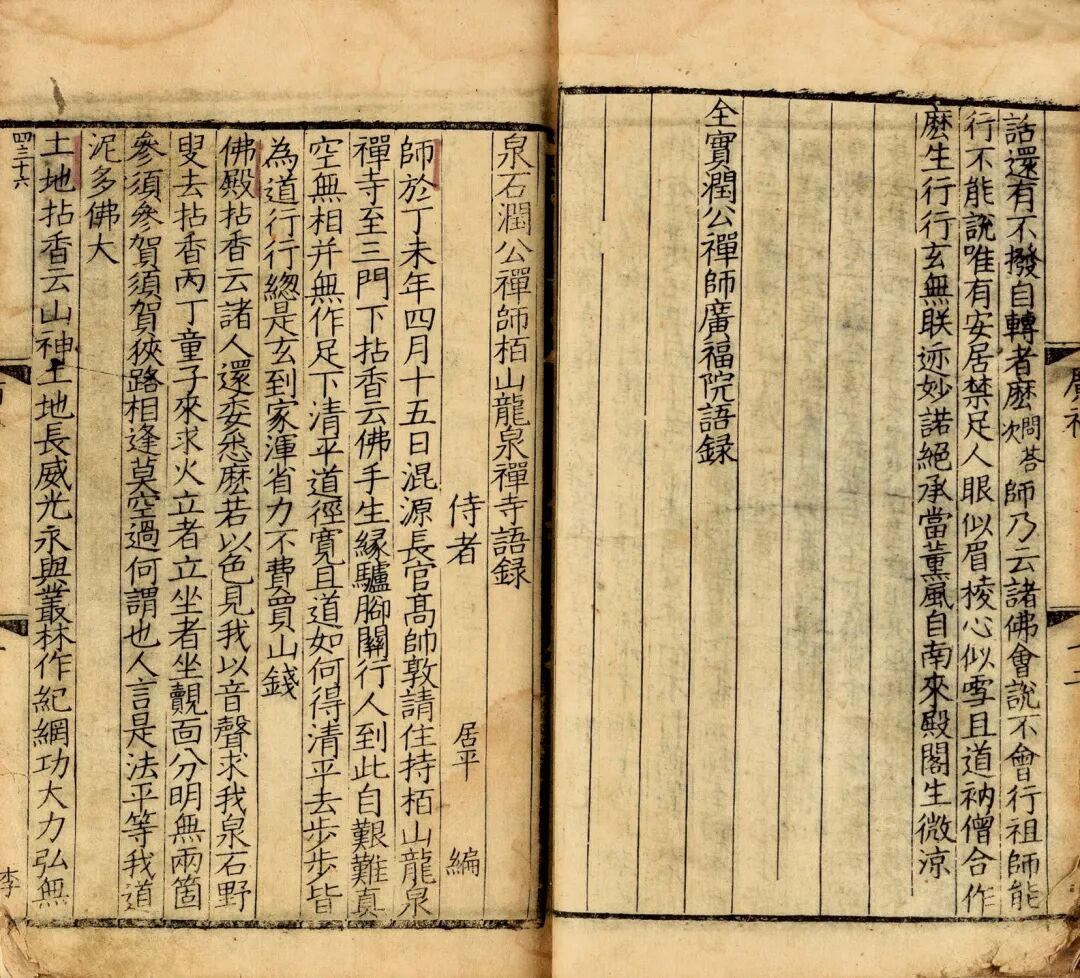 話還有不撥自轉者麽問荅不次師乃云諸佛會說不會行祖師能
行不能說唯有安居禁足人眼似眉棱心似雪且道衲僧合作
麽生行行玄無联迹妙諾絕承當薰風自南來殿閣生微凉
全寶潤公禪師廣福院語録
廣福
十三
泉石潤公禪師栢山龍泉禪寺語録
侍者 居平 編
師於丁未年四月十五日混源長官髙帥敦請住持栢山龍泉
禪寺至三門下拈香云佛手生縁驢腳關行人到此自艱難真
空無相并無作足下清平道徑寬且道如何得清平去步步皆
為道行行總是玄到家渾省力不費買山錢
佛殿拈香云諸人還委悉麽若以色見我以音聲求我泉石野
叟去拈香丙丁童子來求火立者立坐者坐覿面分明無兩箇
參須參賀須賀狹路相逢莫空過何謂也人言是法平等我道
泥多佛大
土地拈香云山神土地長威光永與叢林作紀綱功大力弘無
四三十六
李